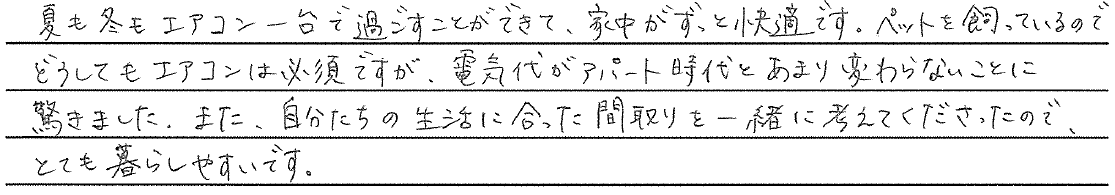 夏も冬もエアコン一台で過ごすことができて、家中がずっと快適です。ペットを飼っているので
どうしてもエアコンは必須ですが、電気代がアパート時代とあまり変わらないことに
驚きました。また、自分たちの生活に合った間取りを一緒に考えてくださったので、
とても暮らしやすいです。